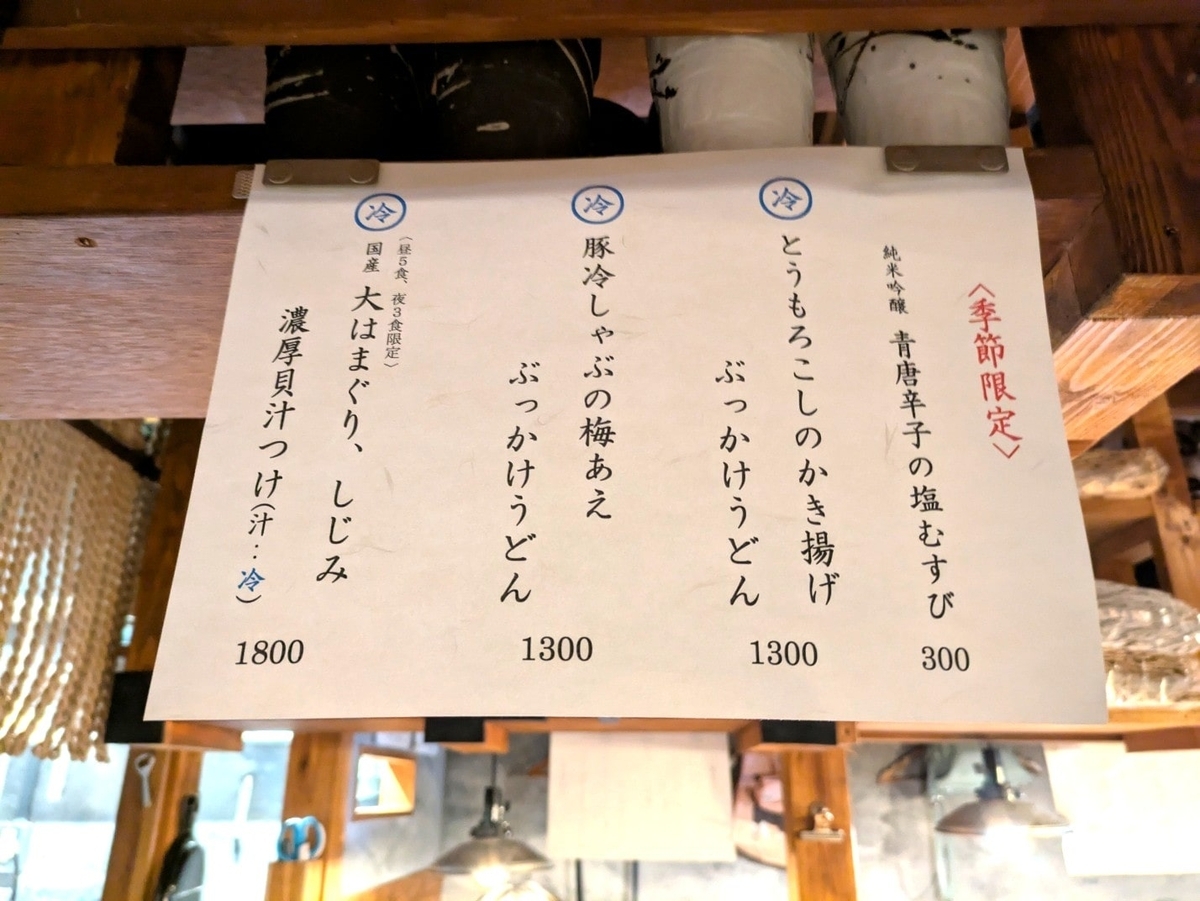 〈季節限定〉
純米吟醸 青唐辛子の塩むすび
300
冷
とうもろこしのかき揚げ
ぶっかけうどん
1300
冷
豚冷しゃぶの梅あえ
ぶっかけうどん
1300
冷
〈昼5食、夜3食限定〉
国産 大はまぐり、しじみ
濃厚貝汁つけ(汁…冷)
1800